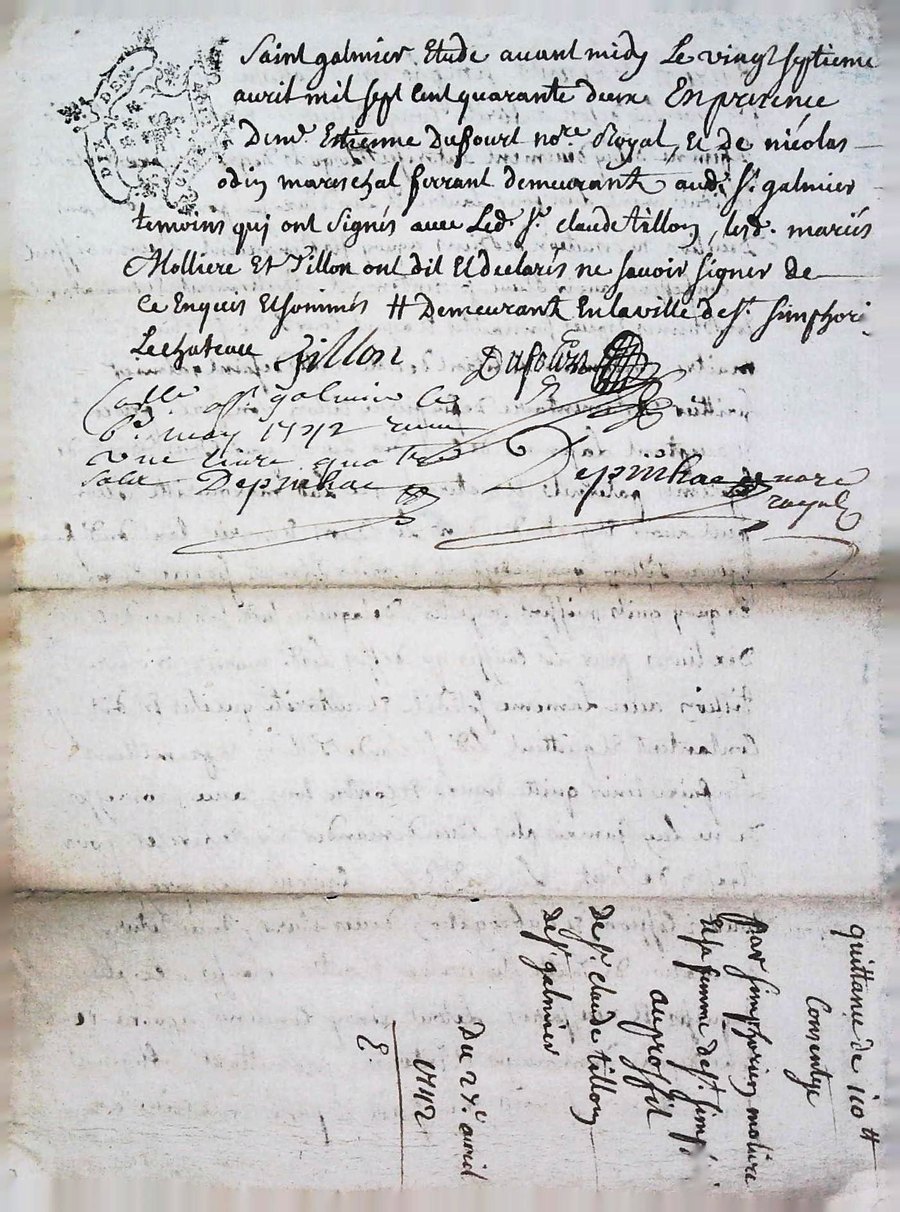 Saint galmier Etude avant midy Le vingt septieme
avril mil sept Cent quarante deux En presence
De mr. Estienne Dufourt nore. Royal, Et de nicolas
odin mareschal ferrant demeurant audt. St. galmier
temoins qui ont signés avec Led. Sr. claude tillon, lesd. mariés
Molliere Et Tillon ont dit Et declarés ne savoir signer de
Ce Enquis Et sommés # Demeurant En la ville de st. Simphori.
Le chateau Tillon Dufour
galmier Le
6e. may 1742
une livre quatre
Depinhac
Depinhac nore
royal
quittance de 110 #
Consentye
par simphorien moliere
Et sa femme de st. simp.
au proffit
De sr. claude tillon
De st. galmier
Du 27e. avril
1742